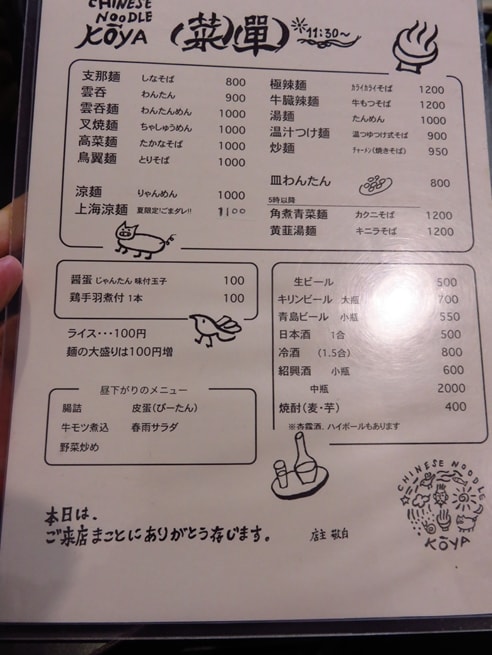 CHINESE
NOODLE
KŌYA
(菜單)
11:30〜
支那麺 しなそば 800
雲呑 わんたん 900
雲呑麺 わんたんめん 1000
叉焼麺 ちゃしゅうめん 1000
高菜麺 たかなそば 1000
鳥翼麺 とりそば 1000
涼麺 りゃんめん 1000
上海涼麺 夏限定!ごまダレ!! 1100
極辣麺 ｶﾗｲｶﾗｲそば 1200
牛臓辣麺 牛もつそば 1200
湯麺 たんめん 1000
温汁つけ麺 温つゆつけ式そば 900
炒麺 ﾁｬｰﾒﾝ(焼きそば) 950
皿わんたん 800
5時以降
角煮青菜麺 カクニそば 1200
黄韮湯麺 キニラそば 1200
醤蛋 じゃんたん 味付玉子 100
鶏手羽煮付 1本 100
ライス・・・100円
麺の大盛りは100円増
昼下がりのメニュー
腸詰 皮蛋(ぴーたん)
牛モツ煮込 春雨サラダ
野菜炒め
生ビール 500
キリンビール 大瓶 700
青島ビール 小瓶 550
日本酒 1合 500
冷酒 (1.5合) 800
紹興酒 小瓶 600
中瓶 2000
焼酎(麦・芋) 400
※杏露酒、ハイボールもあります
本日は、
ご来店まことにありがとう存じます。
店主 敬白
CHINESE NOODLE
KŌYA